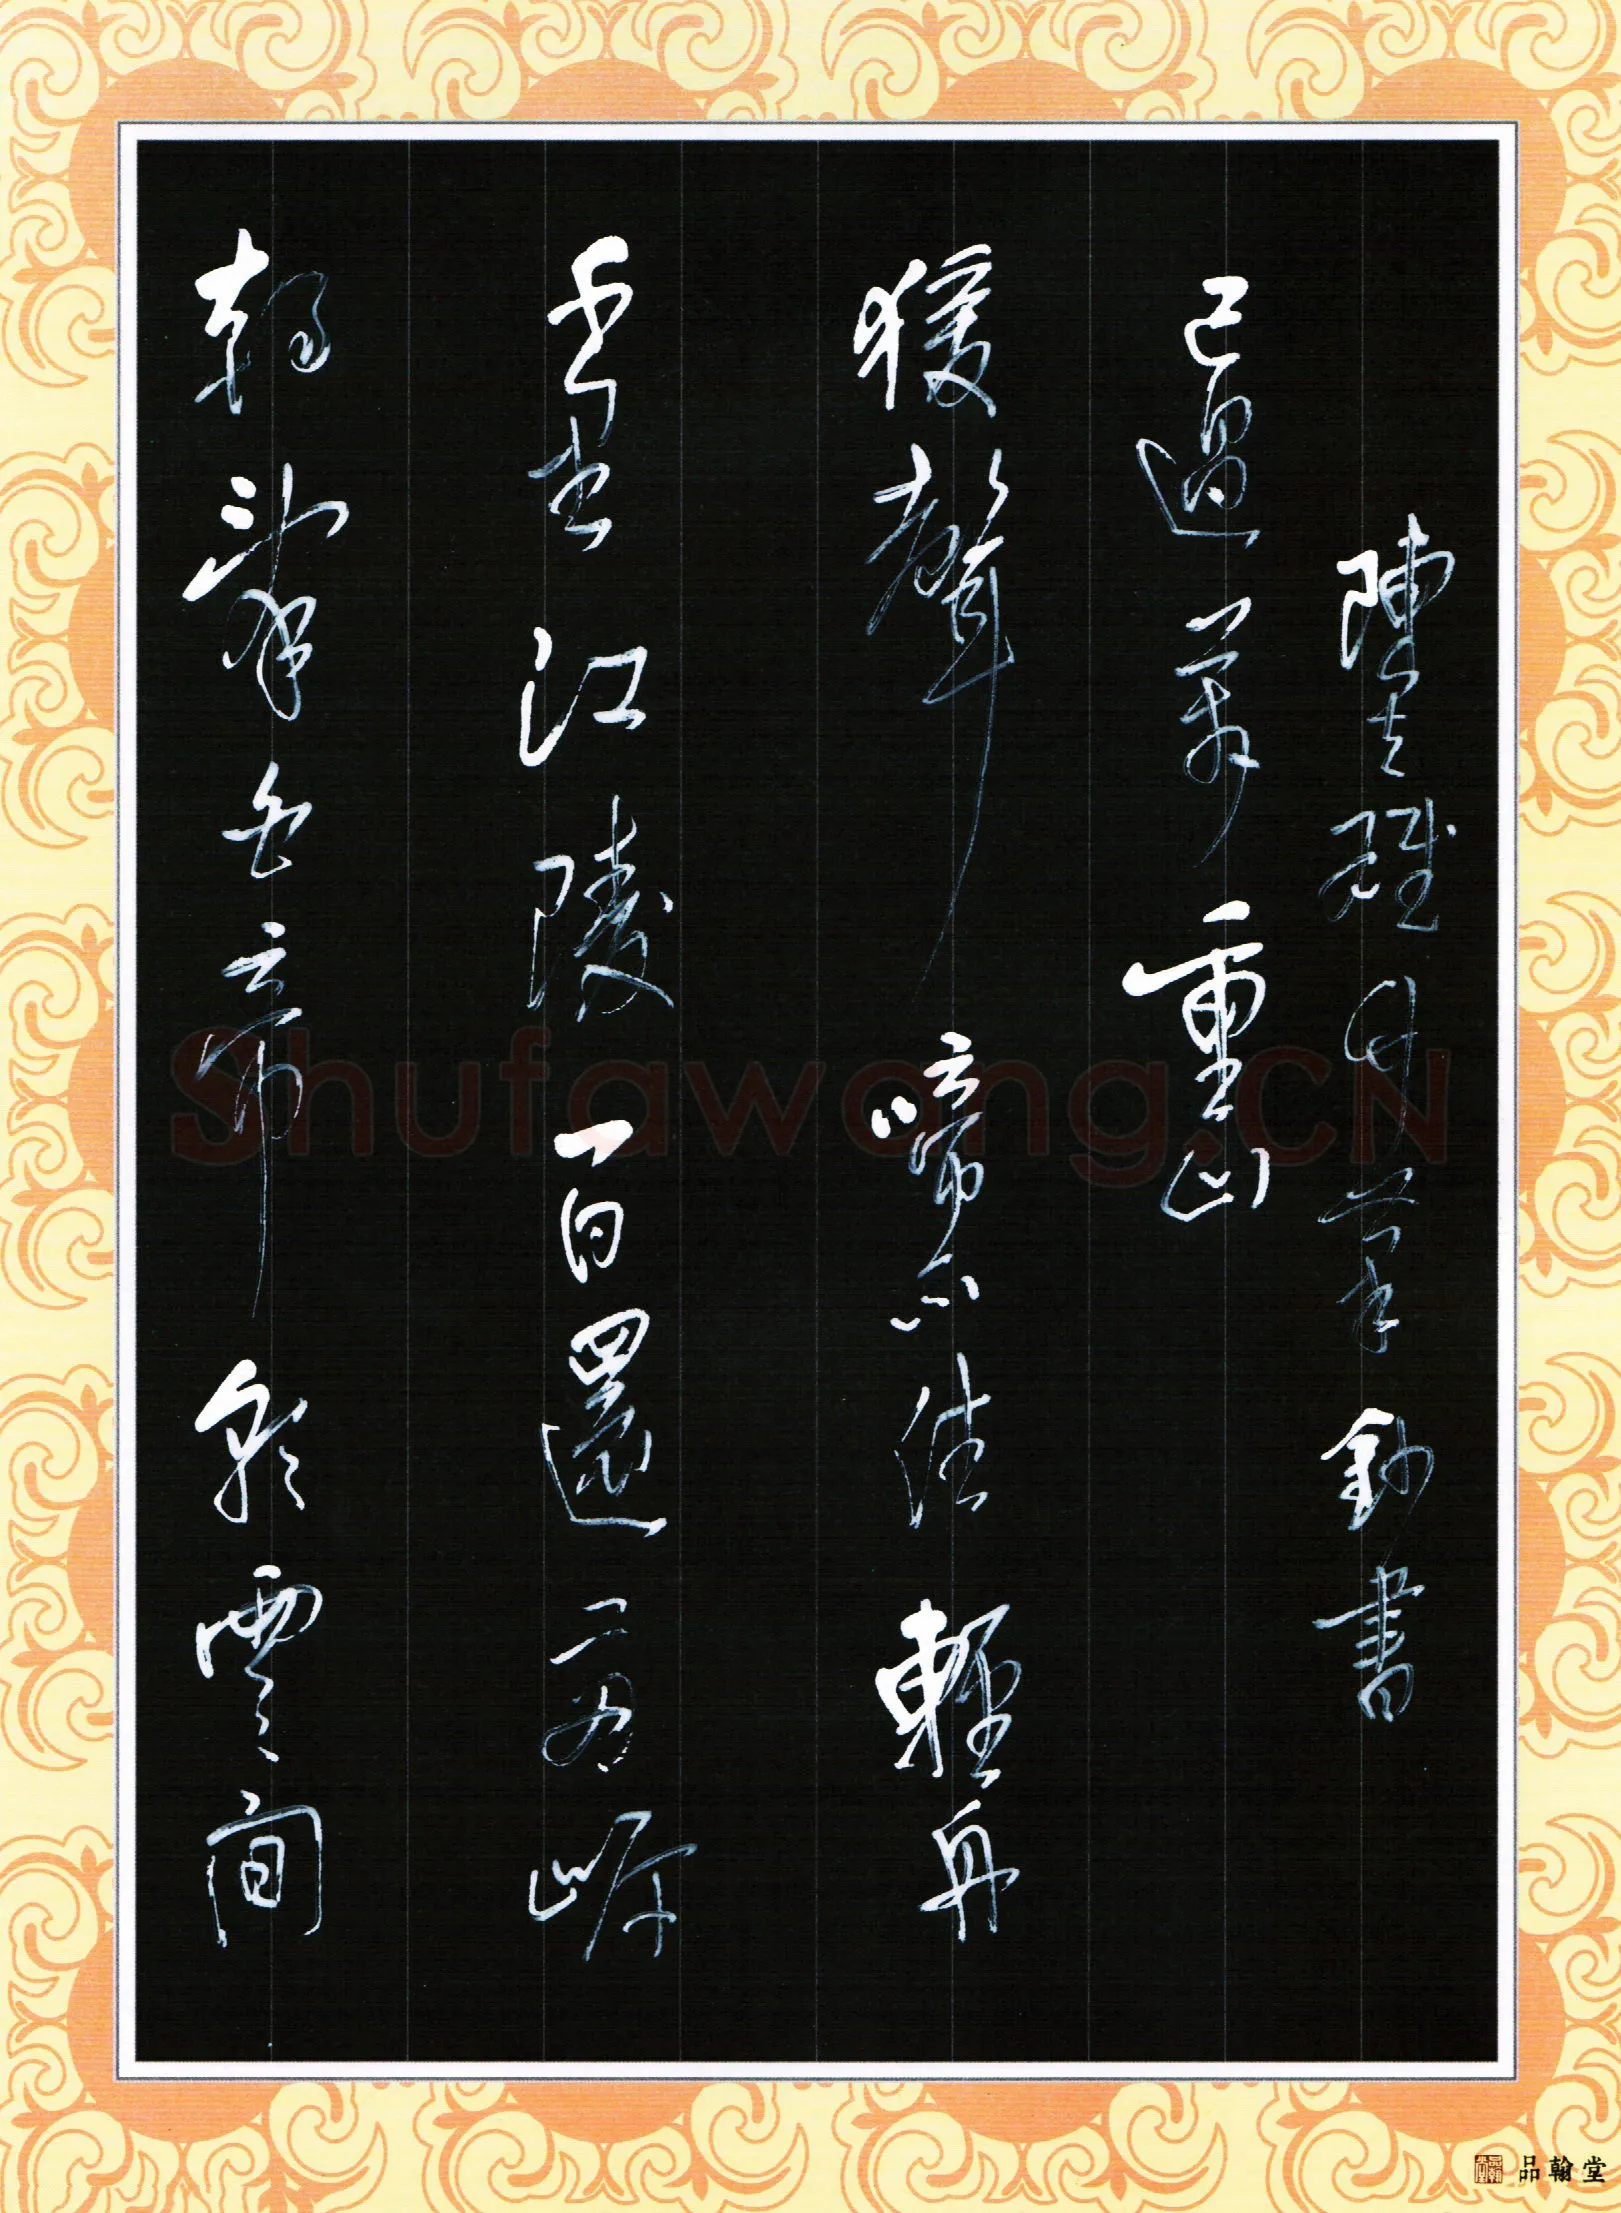 朝辭白帝彩雲間
千里江陵一日還兩岸
猿聲啼不住輕舟
已過萬重山
陳 鈔書
Shufawang.CN
品翰堂